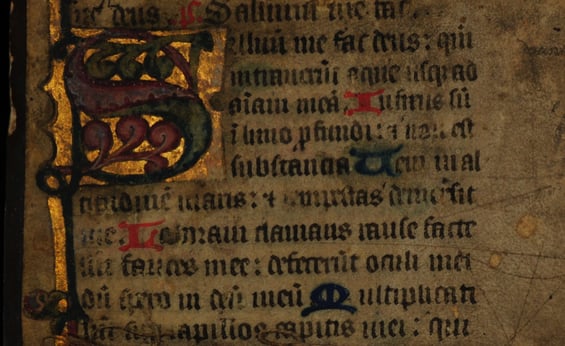 me deus. Saluum me fac
Saluum me fac deus: qm̄
intrauerūt aque usq; ad
aīam meā. Infixus sū
ī limo ꝓfundi: ⁊ non est
substantia Veni in al
titudinē maris: ⁊ tempestas demersit
me. Laboraui clamans rauce facte
sūt fauces mee: defecerūt oculi mei
dū spero in deū meū Multiplicati
sūt sup̄ capillos capitis mei: qui